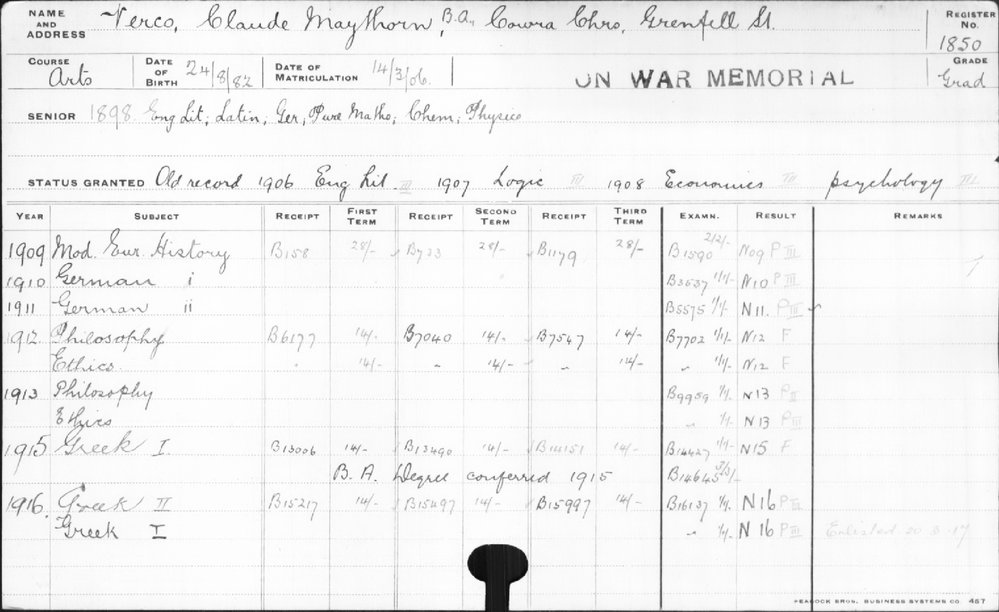 NAME AND ADDRESS Verco, Claude Maythorn, B.A., Cowra Chrs, Grenfell St. REGISTER No. 1850
COURSE Arts DATE OF BIRTH 24/8/82 DATE OF MATRICULATION 14/3/06 ON WAR MEMORIAL GRADE Grad
SENIOR 1898 Eng Lit; Latin; Ger; Pure Maths; Chem; Physics
STATUS GRANTED Old record 1906 Eng Lit III 1907 Logic III 1908 Economics III psychology III
YEAR SUBJECT RECEIPT FIRST TERM RECEIPT SECOND TERM RECEIPT THIRD TERM EXAMN. RESULT REMARKS
1909 Mod. Eur. History B158 28/- B733 28/- B1179 28/- B1590 2/2/- N09 P III
1910 German i B3537 1/1/- N10 P III
1911 German ii B5575 1/1/- N11. P III
1912 Philosophy B6177 14/- B7040 14/- B7547 14/- B7702 1/1/- N12 F
Ethics " 14/- " 14/- " 14/- " 1/1/- N12 F
1913 Philosophy B9959 1/1. N13 P II
Ethics " 1/1. N13 P III
1915 Greek I. B13006 14/- B13490 14/- B14151 14/- B14427 1/1/- N15 F
B.A. Degree conferred 1915 B14645
1916. Greek II B15217 14/- B15497 14/- B15997 14/- B16137 1/1. N16 P III
Greek I " 1/1. N16 P III Enlisted 20 17
PEACOCK BROS. BUSINESS SYSTEMS CO. 457